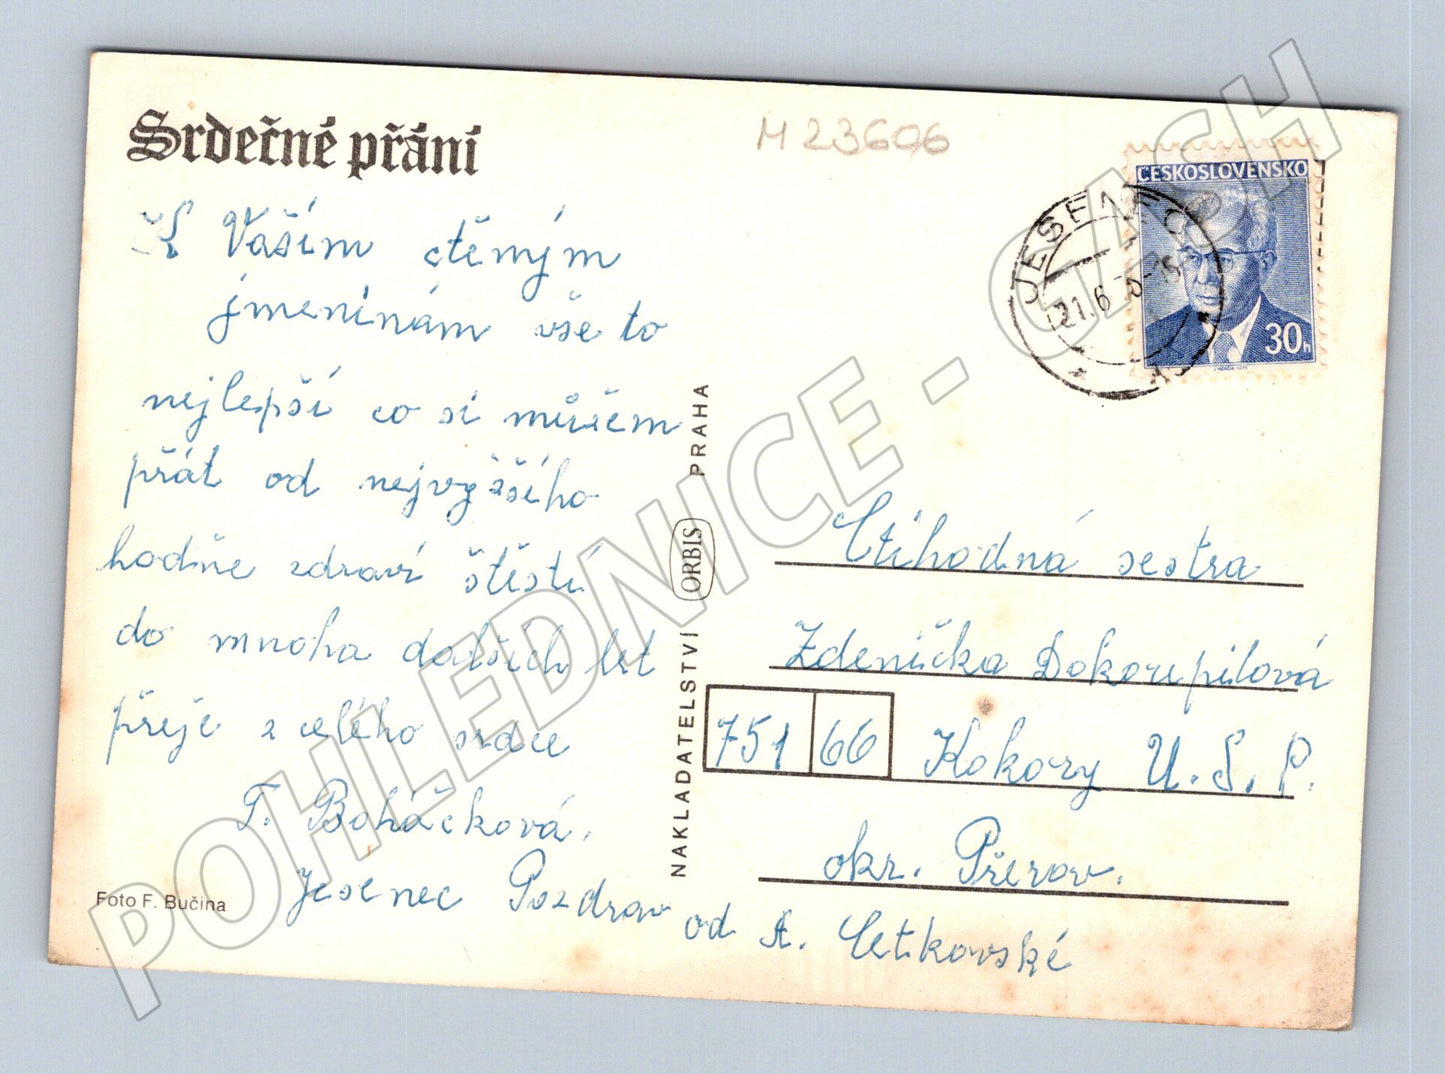 Srdečné přání
M 23606
K Vaším ctěným
jmeninám vše to
nejlepší co si můžem
přát od nejvyžšího
hodňe zdraví štěstí
do mnoha dalších let
přeje z celého srdce
T. Boháčková.
Jesenec Pozdrav
od A. Cetkovské
Foto F. Bučina
NAKLADATELSTVÍ ORBIS PRAHA
ČESKOSLOVENSKO
30h
JESENEC
21.6
Ctihodná sestra
Zdenička Dokoupilová
751 66 Kokory U.S.P.
okr. Přerov.
POHLEDNICE - GASH